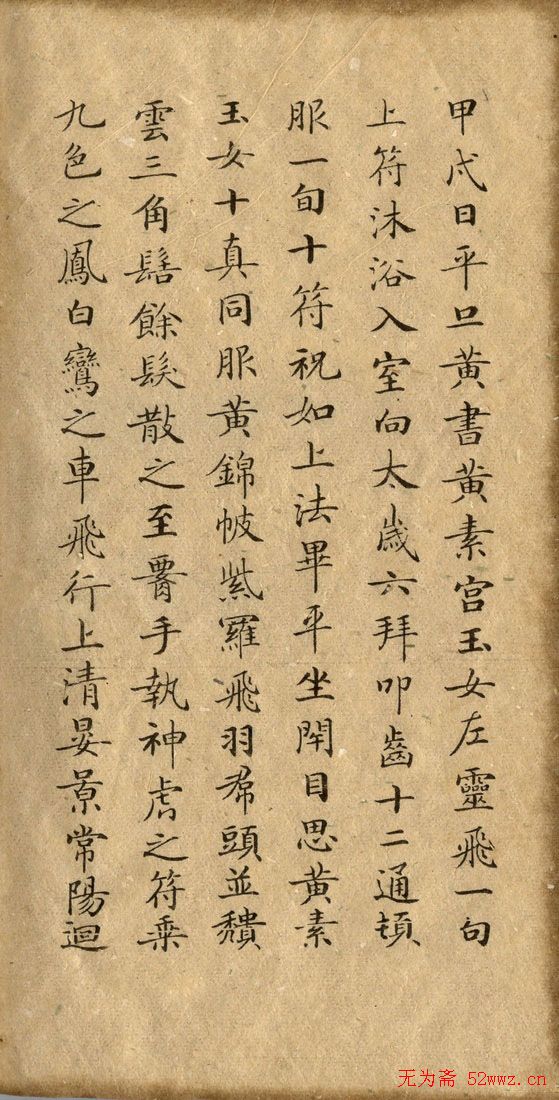 甲戌日平旦黃書黃素宮玉女左靈飛一旬
上符沐浴入室向太歲六拜叩齒十二通頓
服一旬十符祝如上法畢平坐閇目思黃素
玉女十真同服黃錦帔紫羅飛羽帬頭並頹
雲三角髻餘髮散之至腰手執神虎之符乘
九色之鳳白鸞之車飛行上清晏景常陽迴
无为斋 52wwz.cn